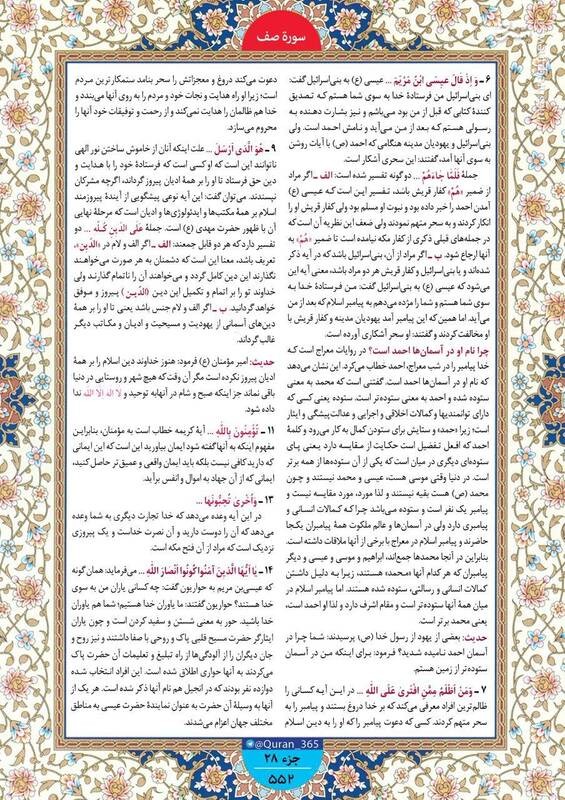 سورة صف
۶ ـ وَ اِذْ قالَ عیسَی ابْنُ مَرْیَمَ ... عیسی (ع) به بنی‌اسرائیل گفت:
ای بنی‌اسرائیل من فرستادهٔ خدا به سوی شما هستم که تصدیق
کنندهٔ کتابی که قبل از من بود می‌باشم و نیز بشارت دهنده به
رسولی هستم که بعد از من می‌آید و نامش احمد است. ولی
بنی‌اسرائیل و یهودیان مدینه هنگامی که احمد (ص) با آیات روشن
به سوی آنها آمد، گفتند: این سحری آشکار است.
جملهٔ فَلَمّا جاءَهُمْ ... دو گونه تفسیر شده است: الف ـ اگر مراد
از ضمیر «هُمْ» کفار قریش باشد، تفسیر این است که عیسی (ع)
آمدن احمد را خبر داده بود و نبوت او مسلم بود ولی کفار قریش او را
انکار کردند و به سحر متهم نمودند ولی ضعف این نظریه آن است که
در جمله‌های قبلی ذکری از کفار مکه نیامده است تا ضمیر «هُمْ» به
آنها ارجاع شود. ب ـ اگر مراد از آن، بنی‌اسرائیل باشد که در آیه ذکر
شده‌اند و یا بنی‌اسرائیل و کفار قریش هر دو مراد باشد، معنی آیه این
می‌شود که عیسی (ع) به بنی‌اسرائیل گفت: من فرستادهٔ خدا به
سوی شما هستم و شما را مژده می‌دهم به پیامبر اسلام که بعد از من
می‌آید. اما همین که این پیامبر آمد یهودیان مدینه و کفار قریش با
او مخالفت کردند و گفتند: او سحر آشکاری آورده است.
چرا نام او در آسمان‌ها احمد است؟ در روایات معراج است که
خدا پیامبر را در شب معراج، احمد خطاب می‌کرد. این نشان می‌دهد
که نام او در آسمان‌ها احمد است. گفتنی است که محمد به معنی
ستوده شده و احمد به معنی ستوده‌تر است. ستوده یعنی کسی که
دارای توانمندیها و کمالات اخلاقی و اجرایی و عدالت‌پیشگی و ایثار
است؛ زیرا «حمد» و ستایش برای ستودن کمال به کار می‌رود و کلمهٔ
احمد که افعل تفضیل است حکایت از مقایسه دارد یعنی پای
ستوده‌ای دیگری در میان است که یکی از آن ستوده‌ها از همه برتر
است. در دنیا وقتی موسی هست، عیسی و محمد نیستند و چون
محمد (ص) هست بقیه نیستند و لذا مورد، مورد مقایسه نیست و
پیامبر یک نفر است و ستوده می‌باشد چرا که کمالات انسانی و
پیامبری دارد ولی در آسمان‌ها و عالم ملکوت همهٔ پیامبران یکجا
حاضرند و پیامبر اسلام در معراج با برخی از آنها ملاقات داشته است.
بنابراین در آنجا محمدها جمع‌اند، ابراهیم و موسی و عیسی و دیگر
پیامبران که هر کدام آنها «محمد» هستند، زیرا به دلیل داشتن
کمالات انسانی و رسالتی، ستوده شده هستند. اما پیامبر اسلام در
میان همهٔ آنها ستوده‌تر است و مقام اشرف دارد و لذا او احمد است،
یعنی محمد برتر است.
حدیث: بعضی از یهود از رسول خدا (ص) پرسیدند: شما چرا در
آسمان احمد نامیده شدید؟ فرمود: برای اینکه من در آسمان
ستوده‌تر از زمین هستم.
۷ ـ وَمَنْ اَظْلَمُ مِمَّنِ افْتَری عَلَی اللّٰهِ ... در این آیه کسانی را
ظالم‌ترین افراد معرفی می‌کند که بر خدا دروغ بستند و پیامبر را به
سحر متهم کردند. کسی که دعوت پیامبر را که او را به دین اسلام
دعوت می‌کند دروغ و معجزاتش را سحر بنامد ستمکارترین مردم
است؛ زیرا او راه هدایت و نجات خود و مردم را به روی آنها می‌بندد و
خدا هم ظالمان را هدایت نمی‌کند و از رحمت و توفیقات خود آنها را
محروم می‌سازد.
۹ ـ هُوَ الَّذی اَرْسَلَ ... علت اینکه آنان از خاموش ساختن نور الهی
ناتوانند این است که او کسی است که فرستادهٔ خود را با هدایت و
دین حق فرستاد تا او را بر همهٔ ادیان پیروز گرداند، اگرچه مشرکان
نپسندند. می‌توان گفت: این آیه نوعی پیشگویی از آیندهٔ پیروزمند
اسلام بر همهٔ مکتب‌ها و ایدئولوژی‌ها و ادیان است که مرحلهٔ نهایی
آن با ظهور حضرت مهدی (ع) است. جملهٔ عَلَی الدّینِ کُلِّه ... دو
تفسیر دارد که هر دو قابل جمعند: الف ـ اگر الف و لام در «الدّین»،
تعریف باشد، معنا این است که دشمنان به هر صورت می‌خواهند
نگذارند این دین کامل گردد و می‌خواهند آن را ناتمام گذارند ولی
خداوند تو را بر اتمام و تکمیل این دین (الدّین) پیروز و موفق
خواهد گردانید. ب ـ اگر الف و لام جنس باشد یعنی تا او را بر همهٔ
دین‌های آسمانی از یهودیت و مسیحیت و ادیان و مکاتب دیگر
غالب گرداند.
حدیث: امیر مؤمنان (ع) فرمود: هنوز خداوند دین اسلام را بر همهٔ
ادیان پیروز نکرده است مگر آن وقت که هیچ شهر و روستایی در دنیا
باقی نماند جز اینکه صبح و شام در آنها به توحید و لا اله الا الله ندا
داده شود.
۱۱ ـ تُؤْمِنُونَ بِاللّٰهِ ... آیهٔ کریمه خطاب است به مؤمنان، بنابراین
مفهوم اینکه به آنها گفته شود ایمان بیاورید این است که این ایمانی
که دارید کافی نیست بلکه باید ایمان واقعی و عمیق‌تر حاصل کنید،
ایمانی که از آن جهاد به اموال و انفس برآید.
۱۳ ـ وَاُخْری تُحِبُّونَها ...
در این آیه وعده می‌دهد که خدا تجارت دیگری به شما وعده
می‌دهد که آن را دوست دارید و آن نصرت خداست و یک پیروزی
نزدیک است که مراد از آن فتح مکه است.
۱۴ ـ یا اَیُّهَا الَّذینَ آمَنُوا کُونُوا اَنْصارَ اللّٰهِ ... می‌فرماید: همان گونه
که عیسی‌بن مریم به حواریون گفت: چه کسانی یاران من به سوی
خدا هستند؟ حواریون گفتند: ما یاوران خدا هستیم؛ شما هم یاوران
خدا باشید. حور به معنی شستن و سفید کردن است و چون یاران
ایثارگر حضرت مسیح قلبی پاک و روحی با صفا داشتند و نیز روح و
جان دیگران را از آلودگی‌ها از راه تبلیغ و تعلیمات آن حضرت پاک
می‌کردند به آنها حواری اطلاق شده است. این افراد انتخاب شده
دوازده نفر بودند که در انجیل هم نام آنها ذکر شده است. هر یک از
آنها به وسیلهٔ آن حضرت به عنوان نمایندهٔ حضرت عیسی به مناطق
مختلف جهان اعزام می‌شدند.
@Quran_365
جزء ۲۸
۵۵۲